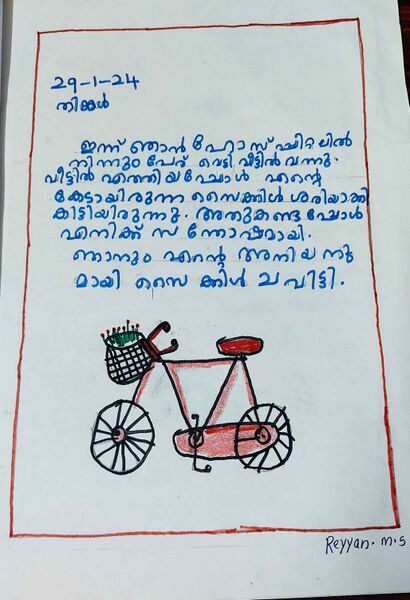 29-1-24
തിങ്കൾ
ഇന്ന് ഞാൻ ഹോസ്പിറ്റലിൽ
നിന്നും പേര് വെട്ടി വീട്ടിൽ വന്നു.
വീട്ടിൽ എത്തിയപ്പോൾ എന്റെ
കേടായിരുന്ന സൈക്കിൾ ശരിയാക്കി
കിട്ടിയിരുന്നു. അതുകണ്ടപ്പോൾ
എനിക്ക് സന്തോഷമായി.
ഞാനും എന്റെ അനിയനു
മായി സൈക്കിൾ ചവിട്ടി.
Reyyan. m.s